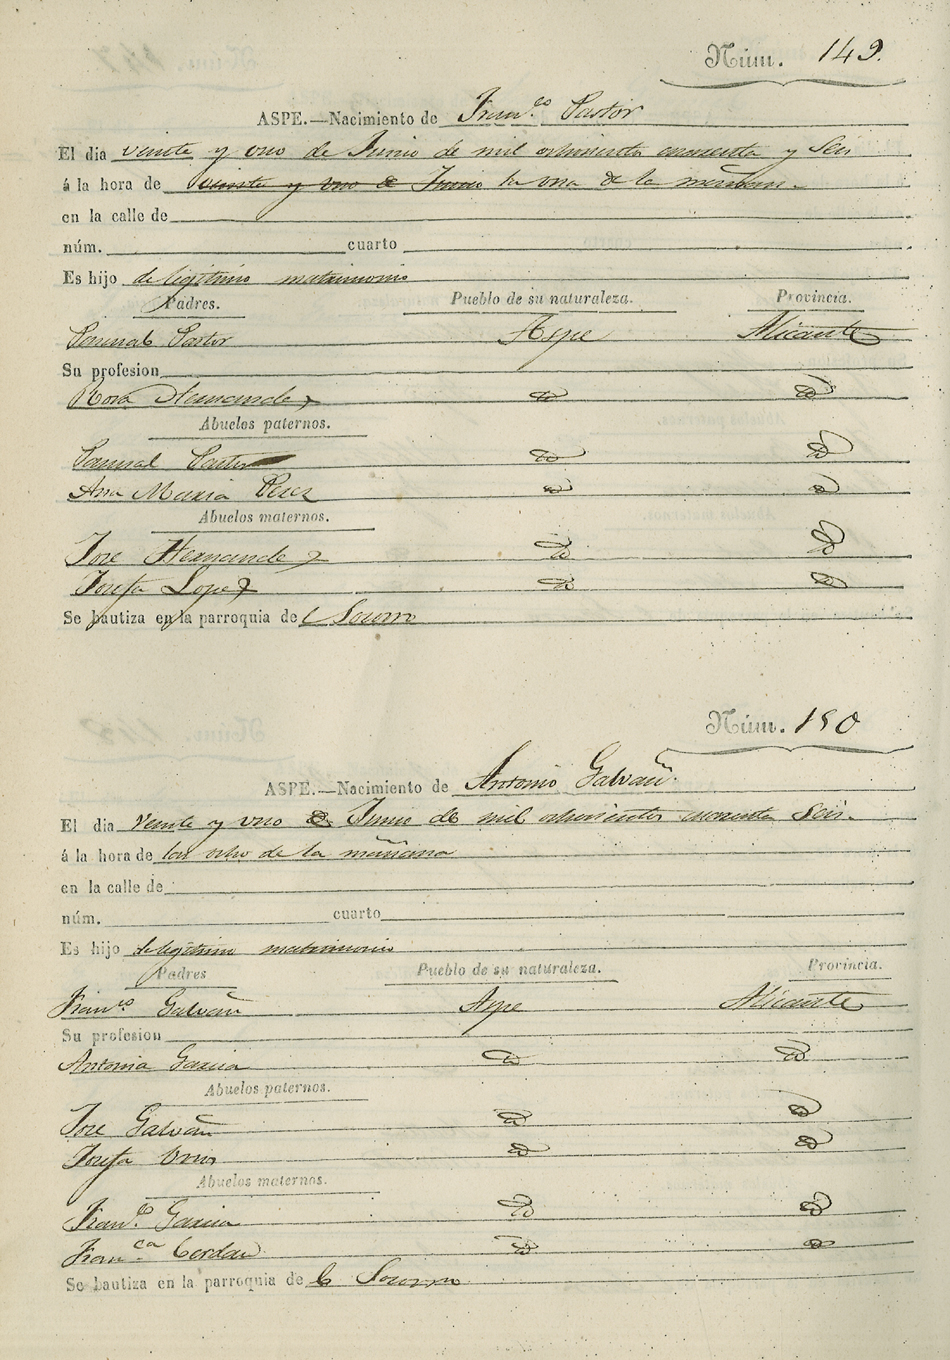 Núm. 149.
ASPE.—Nacimiento de Fran.co Pastor
El dia veinte y uno de Junio de mil ochocientos cuarenta y Seis
á la hora de veinte y uno de Junio la una de la mañana.
en la calle de
núm. cuarto
Es hijo de legitimo matrimonio
Padres. Pueblo de su naturaleza. Provincia.
Pascual Pastor Aspe Alicante
Su profesion
Rosa Hernandez id id
Abuelos paternos.
Pascual Pastor id id
Ana Maria Perez id id
Abuelos maternos.
Jose Hernandez id id
Josefa Lopez id id
Se bautiza en la parroquia de Socorro
Núm. 150
ASPE.—Nacimiento de Antonio Galvañ.
El dia veinte y uno de Junio de mil ochocientos cuarenta Seis.
á la hora de las ocho de la mañana
en la calle de
núm. cuarto
Es hijo de legitimo matrimonio
Padres Pueblo de su naturaleza. Provincia.
Fran.co Galvañ Aspe Alicante
Su profesion
Antonia Garcia id id
Abuelos paternos.
Jose Galvañ id id
Josefa id id
Abuelos maternos.
Fran.co Garcia id id
Fran.ca Cerdan id id
Se bautiza en la parroquia de Socorro